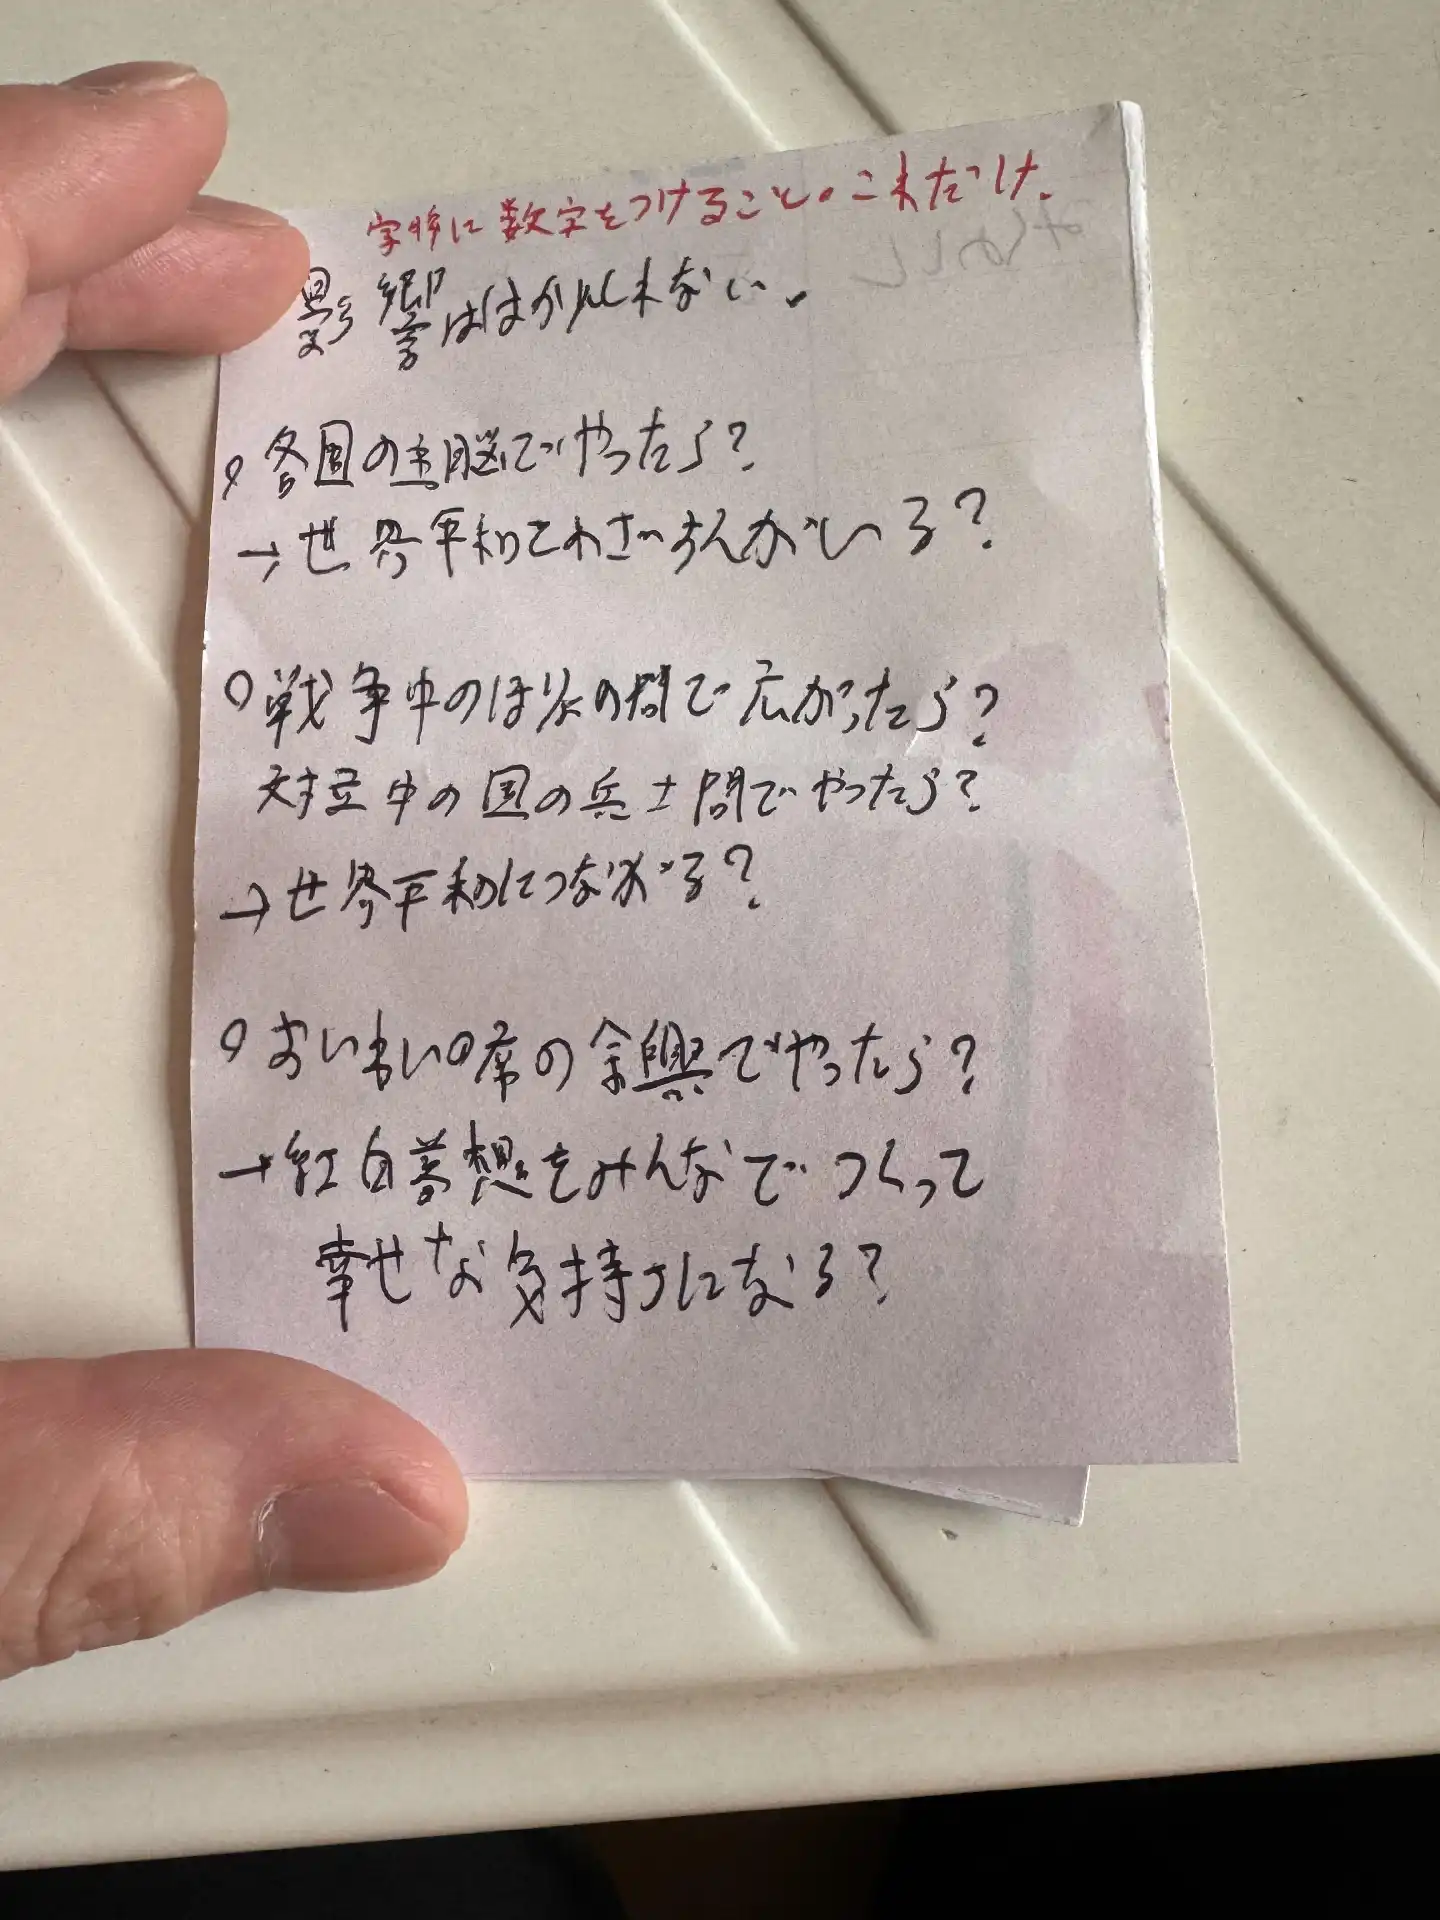 字牌に数字をつけること。これだけ。
影響ははかりしれない。
○各国の首脳でやったら?
→世界平和でわざ すんがいる?
○戦争中のほりょの間で広がったら?
対立中の国の兵士間でやったら?
→世界平和につながる?
○おいわいの席の余興でやったら?
→紅白夢想をみんなでつくって
幸せな気持ちになる?